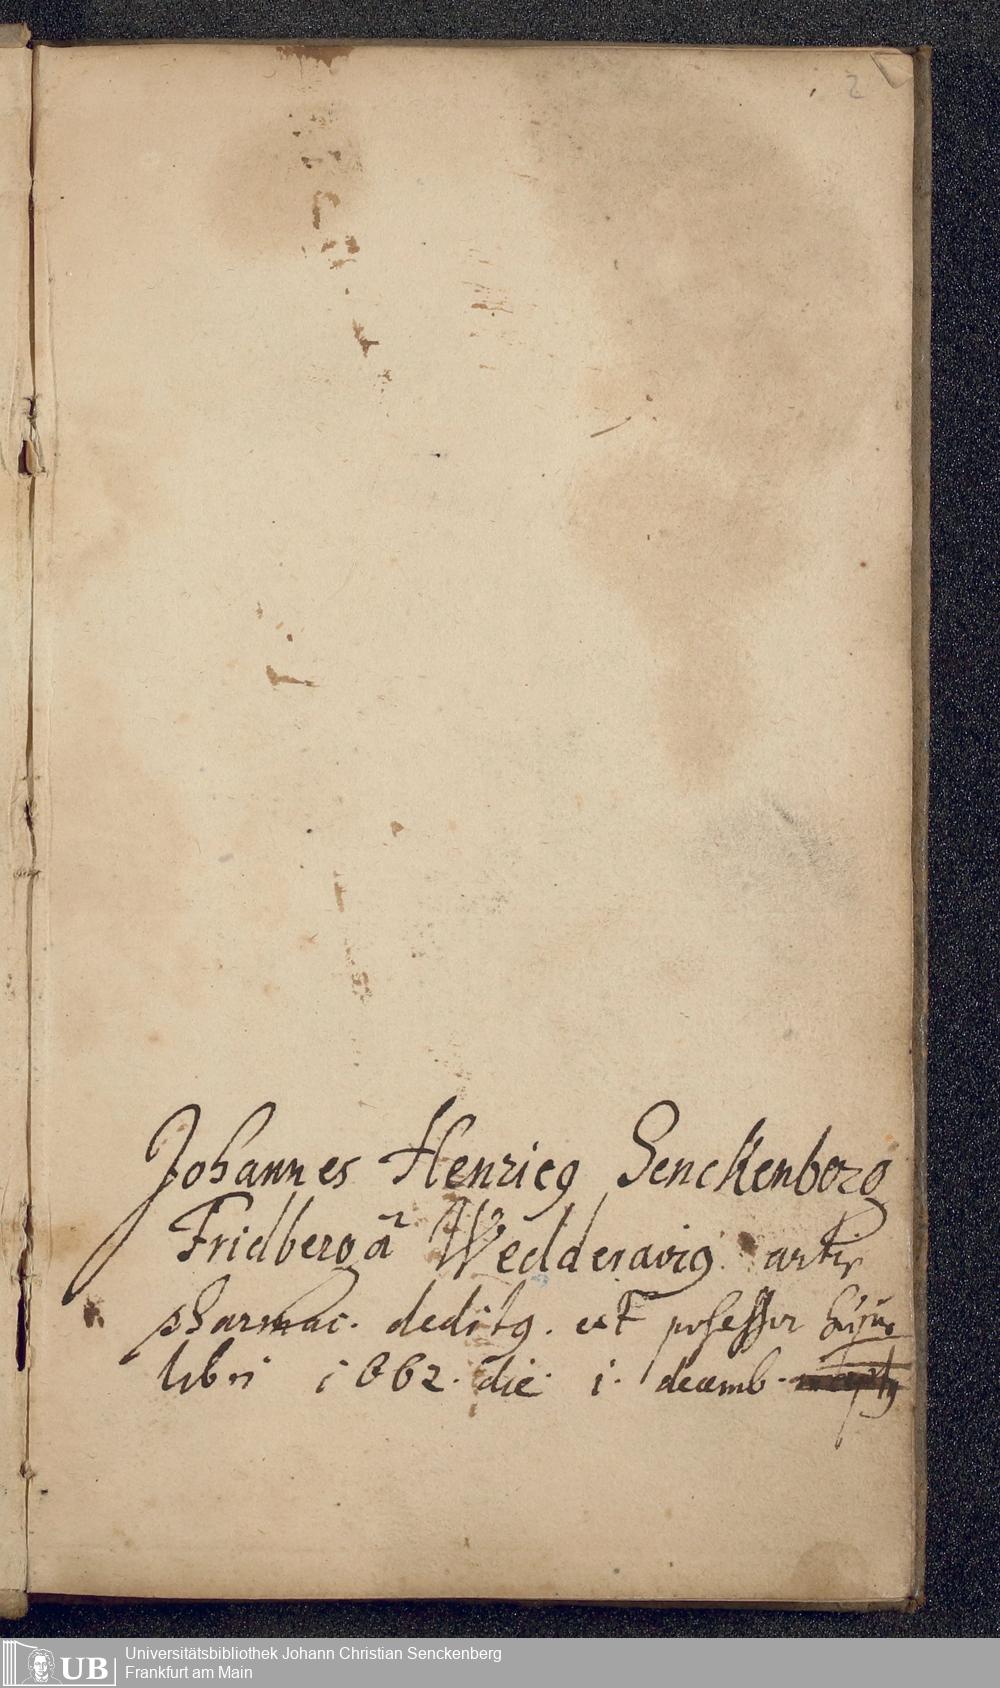 2
Johannes Henricg Senckenberg
Fridbergâ Wedderavig. artis
pharmac. deditg. est possessor hujus
libri 1662. die. 1. decemb.
UB Universitätsbibliothek Johann Christian Senckenberg
Frankfurt am Main